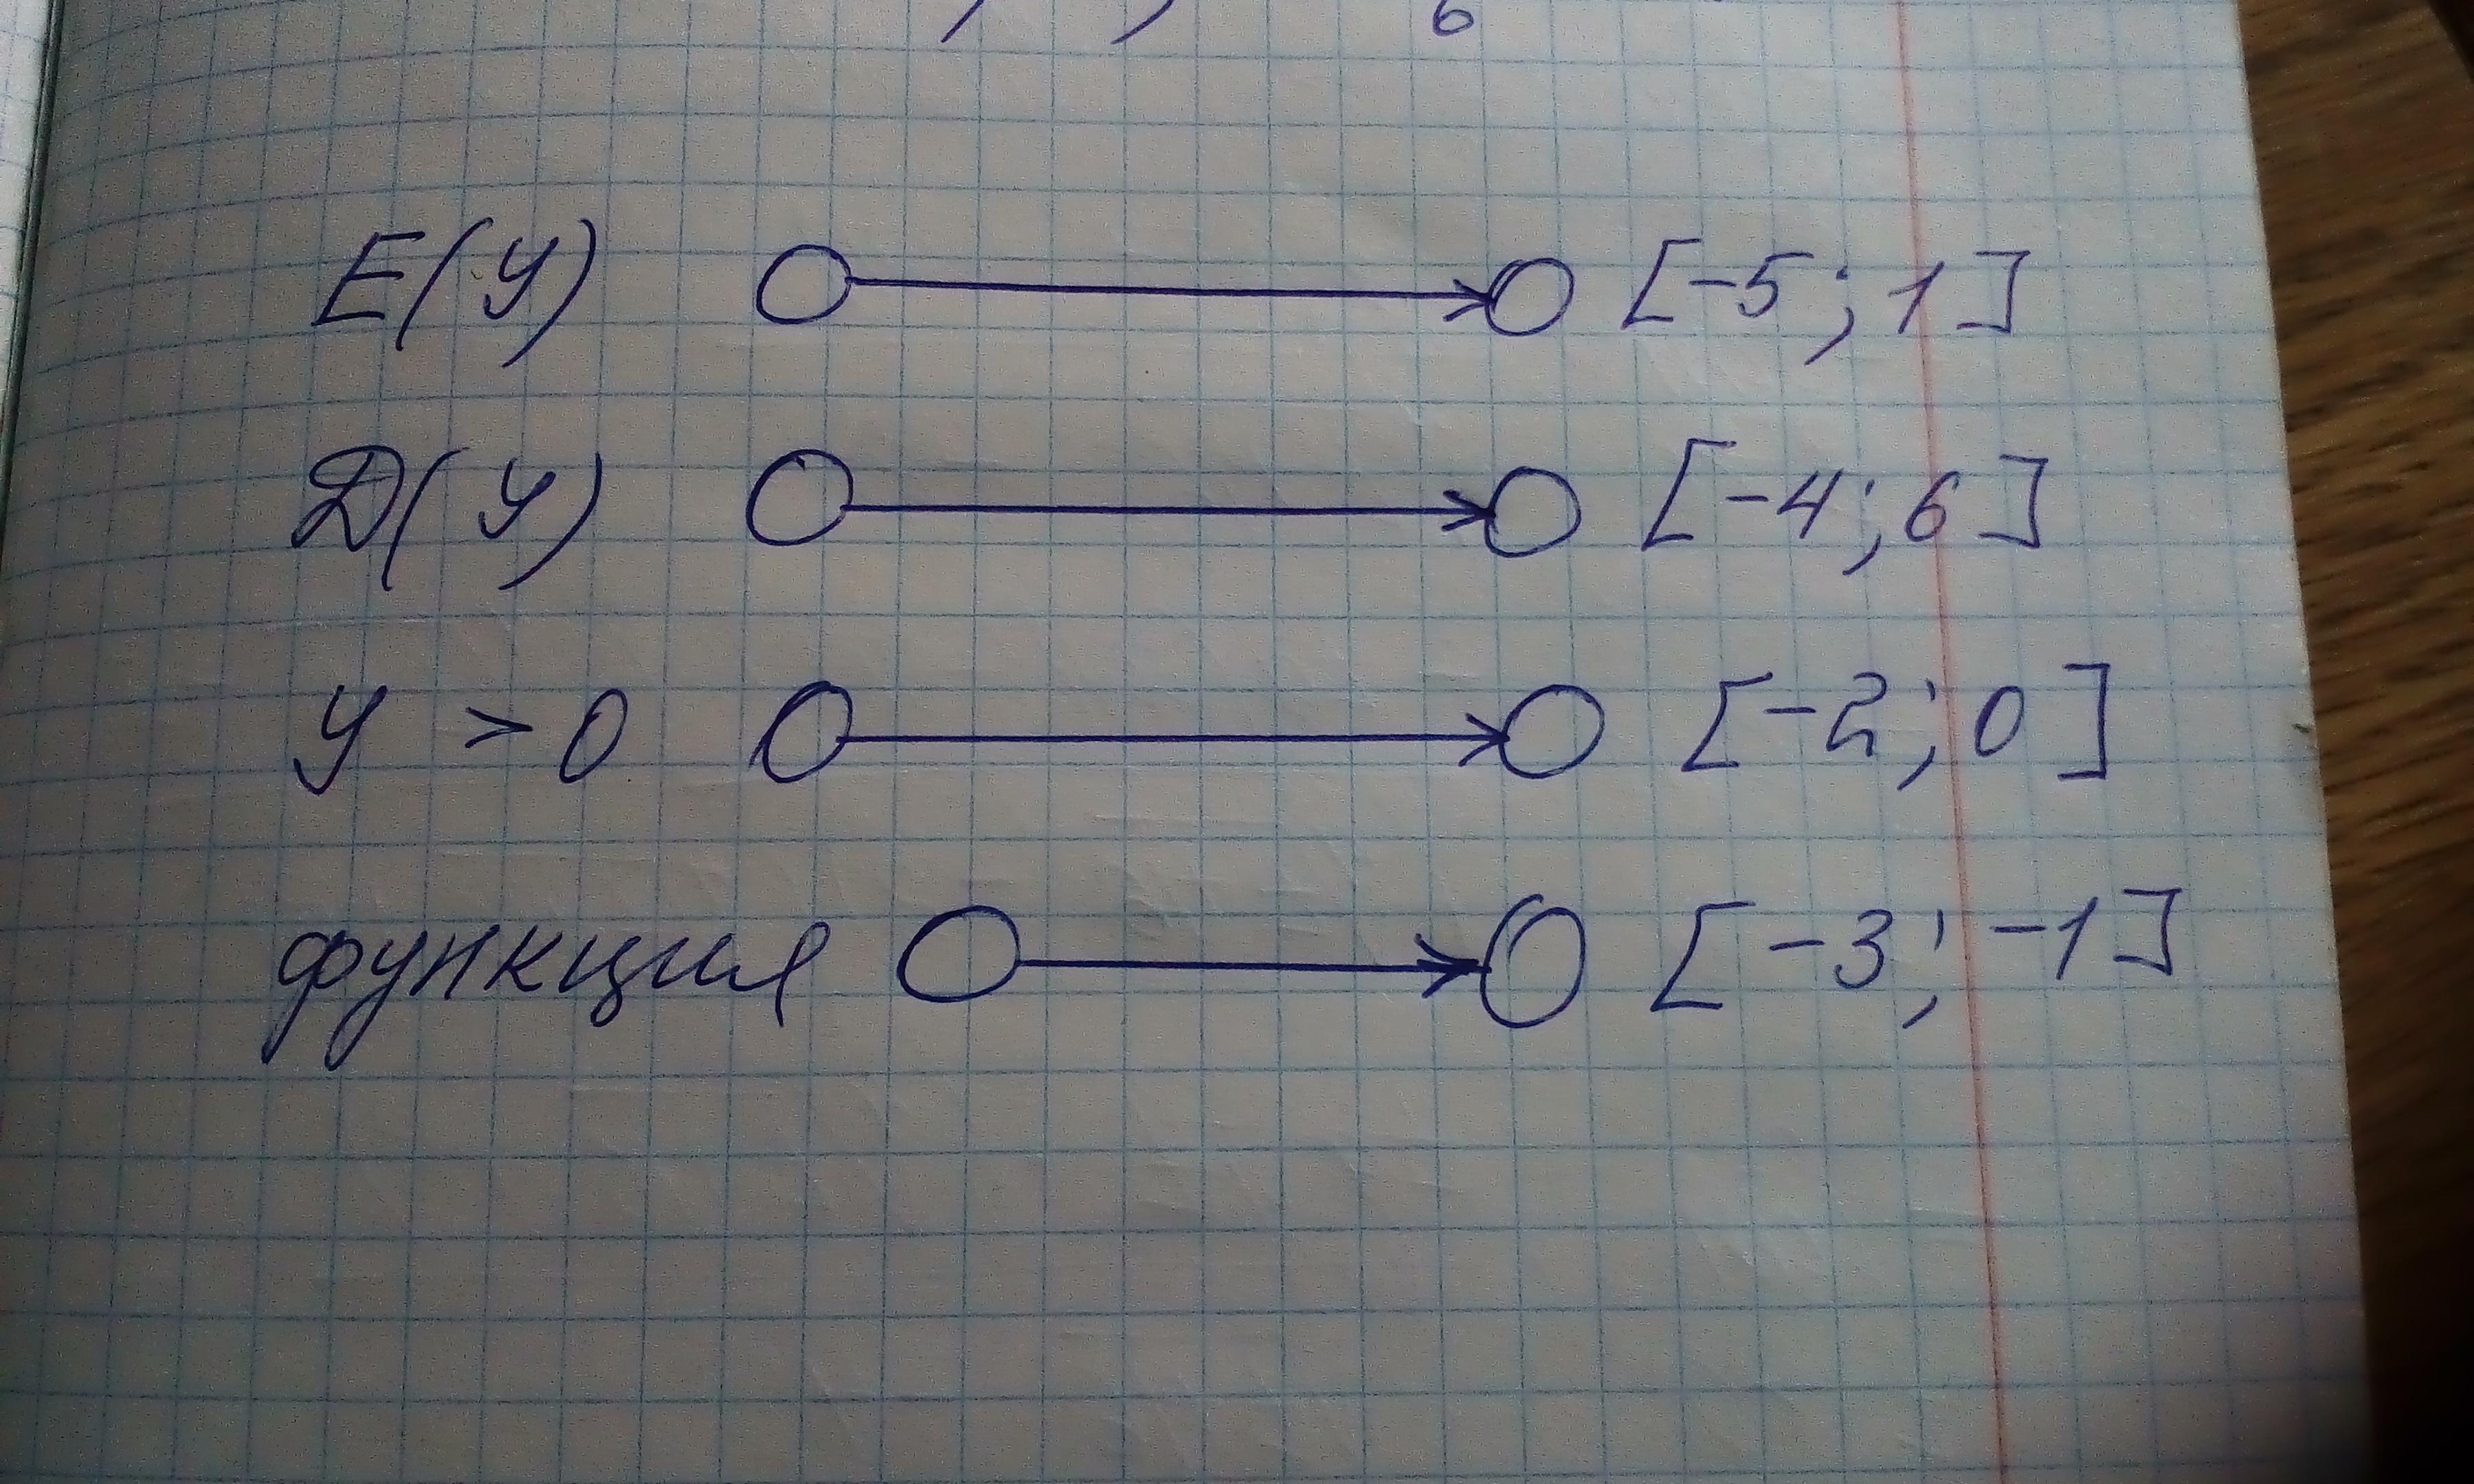 6
Е(у) [-5; 1]
Д(у) [-4; 6]
у > 0 [-2; 0]
функция [-3; -1]